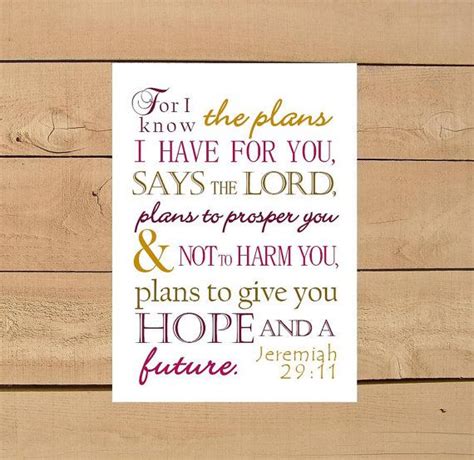 For I
know the plans
I HAVE FOR YOU,
SAYS THE LORD,
plans to prosper you
& NOT TO HARM YOU,
plans to give you
HOPE AND A
future. Jeremiah
29:11